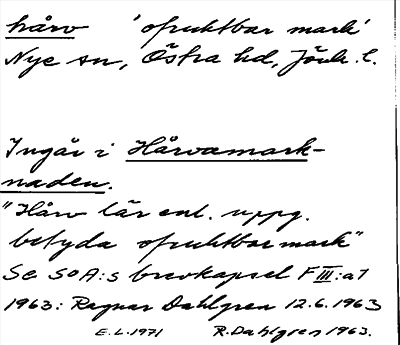 hårv 'ofruktbar mark'
Nye sn, Östra hd, Jönk. l.
Ingår i Hårvamark-
naden.
"Hårv lär enl. uppg.
betyda ofruktbar mark"
Se SOA:s brevkapsel F III:a7
1963: Ragnar Dahlgren 12.6.1963
E.L.1971 R.Dahlgren 1963.